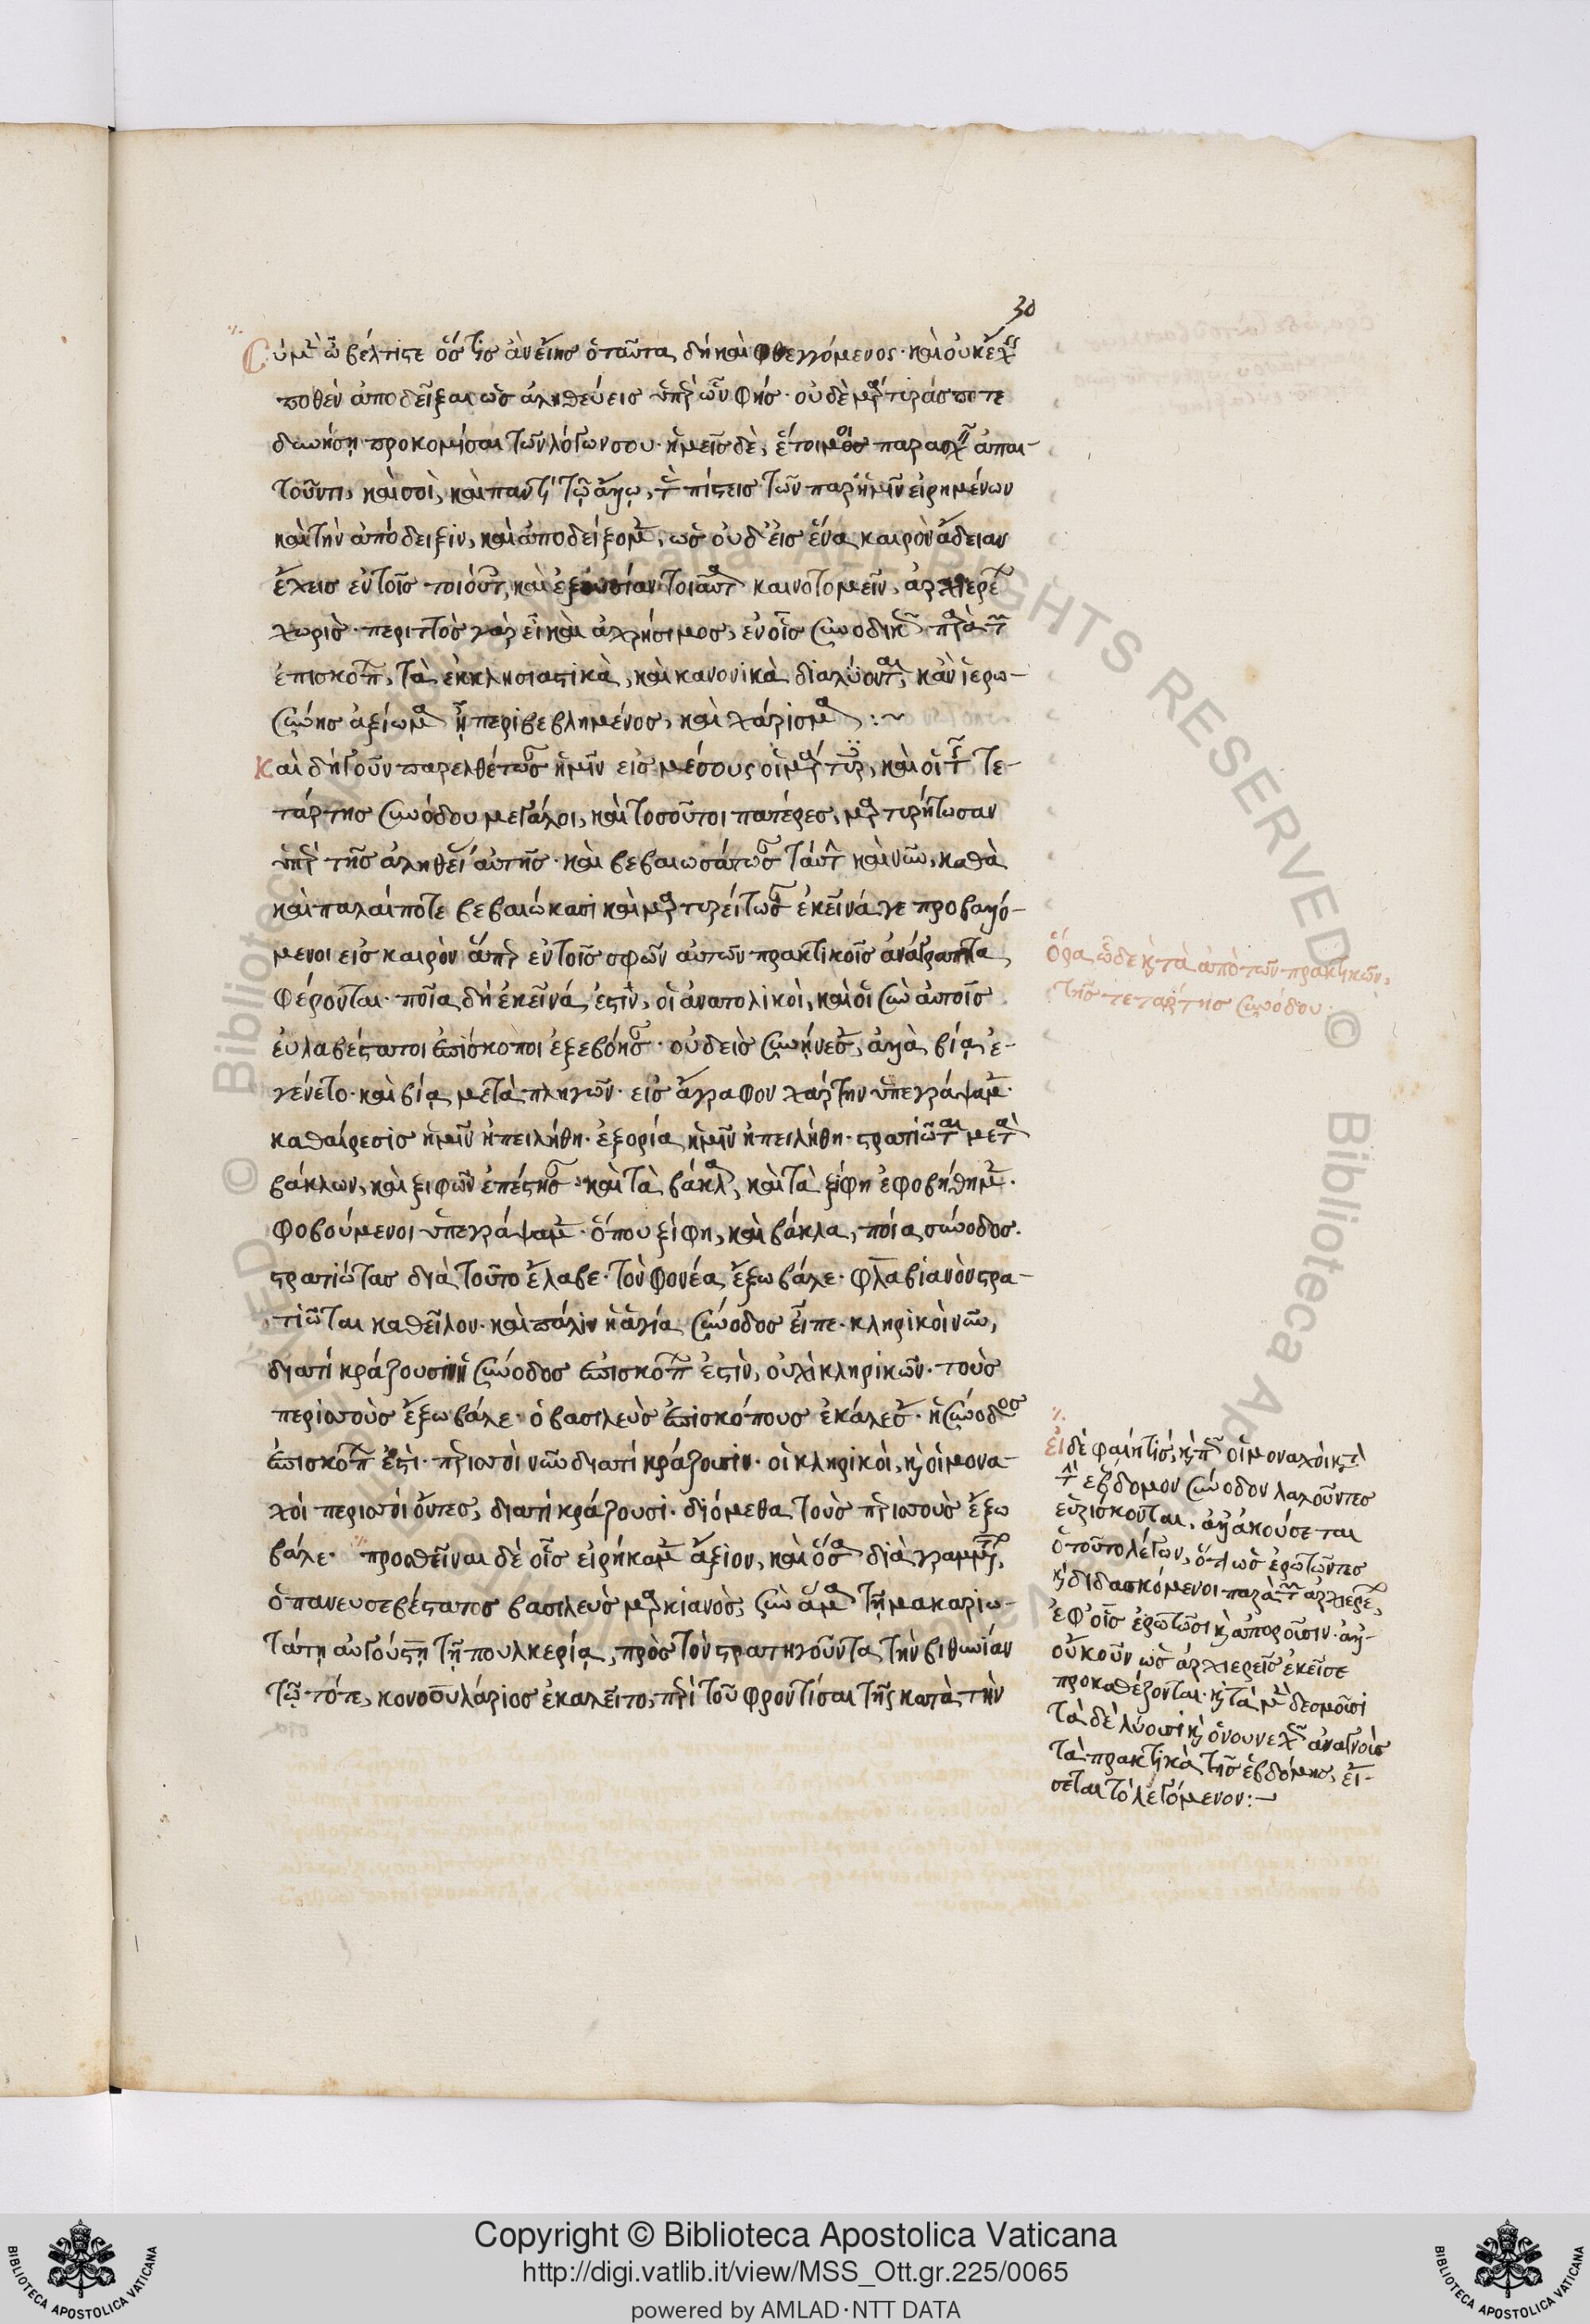 30
Σὺ μὲν ὦ βέλτιστε ὅστις ἂν εἴης ὁ ταῦτα δὴ καὶ φθεγγόμενος· καὶ οὐκ ἔχεις
ποθὲν ἀποδεῖξαι ὡς ἀληθεύεις ὑπὲρ ὧν φής· οὐδὲ μάρτυράς ποτε
δεινήση προκομίσαι τῶν λόγων σου· ἡμεῖς δὲ, ἕτοιμοι παρασχεῖν ἀπαι-
τοῦντι, καὶ σοὶ, καὶ παντὶ τῷ ἄλλῳ, τὰς πίστεις τῶν παρ' ἡμῖν εἰρημένων
καὶ τὴν ἀπόδειξιν, καὶ ἀποδείξομεν, ὡς οὐδ' εἰς ἕνα καιρὸν ἄδειαν
ἔχεις ἐν τοῖς τοιούτοις, καὶ ἐξουσίαν τοιαῦτα καινοτομεῖν, ἀρχιερέων
χωρίς· περιττὸς γὰρ εἶ καὶ ἀχρήσιμος, ἐν οἷς συνοδικῶς παρὰ τῶν
ἐπισκόπων, τὰ ἐκκλησιαστικὰ, καὶ κανονικὰ διαλύονται, κἂν ἱερω-
σύνης ἀξίωμα ᾖ περιβεβλημένος, καὶ χάρισμα :~
Καὶ δὴ γοῦν παρελθέτωσαν ἡμῖν εἰς μέσους οἱ μάρτυρες, καὶ οἱ τῆς τε-
τάρτης συνόδου μεγάλοι, καὶ τοσοῦτοι πατέρες, μαρτυρήτωσαν
ὑπὲρ τῆς ἀληθείας αὐτῆς· καὶ βεβαιωσάτωσαν ταύτην καὶ νῦν, καθὰ
καὶ πάλαι ποτε βεβαιώκασι καὶ μαρτυρείτωσαν ἐκεῖνά γε προβαλλό-
μενοι εἰς καιρὸν ἅπερ ἐν τοῖς σφῶν αὐτῶν πρακτικοῖς ἀνάγραπτα
φέρονται· ποῖα δὴ ἐκεῖνά ἐστὶν, οἱ ἀνατολικοὶ, καὶ οἱ σὺν αὐτοῖς
εὐλαβέστατοι ἐπίσκοποι ἐξεβόησαν· οὐδεὶς συνῄνεσεν, ἀλλὰ βία ἐ-
γένετο· καὶ βία μετὰ πληγῶν· εἰς ἄγραφον χάρτην ὑπεγράψαμεν·
καθαίρεσις ἡμῖν ἠπειλήθη· ἐξορία ἡμῖν ἠπειλήθη· στρατιῶται μετὰ
βάκλων, καὶ ξιφῶν ἐπέστησαν· καὶ τὰ βάκλα, καὶ τὰ ξίφη ἐφοβήθημεν·
φοβούμενοι ὑπεγράψαμεν· ὅπου ξίφη, καὶ βάκλα, ποία σύνοδος·
στρατιώτας διὰ τοῦτο ἔλαβε· τὸν φονέα ἔξω βάλε· φλαβιανὸν στρα-
τιῶται καθεῖλον· καὶ πάλιν ἡ ἁγία σύνοδος εἶπε· κληρικοὶ νῦν,
διατί κράζουσιν ἡ σύνοδος ἐπισκόπων ἐστὶν, οὐχὶ κληρικῶν· τοὺς
περισσοὺς ἔξω βάλε· ὁ βασιλεὺς ἐπισκόπους ἐκάλεσεν· ἡ σύνοδος
ἐπισκόπων ἐστι· περισσοὶ νῦν διατί κράζουσιν· οἱ κληρικοὶ, καὶ οἱ μονα-
χοὶ περισσοὶ ὄντες, διατί κράζουσι· διόμεθα τοὺς περισσοὺς ἔξω
βάλε· προσθεῖναι δὲ οἷς εἰρήκαμεν ἄξιον, καὶ ὅσα διὰ γραμμάτων,
ὁ πανευσεβέστατος βασιλεὺς μαρκιανὸς, σὺν ἅμα τῇ μακαριω-
τάτῃ αὐγούστῃ τῇ πουλκερίᾳ, πρὸς τὸν στρατηγοῦντα τὴν βιθυνίαν
τῷ τότε, κονσουλάριος ἐκαλεῖτο, περὶ τοῦ φροντίσαι τῆς κατὰ τὴν
ὅρα ὧδε καὶ τὰ ἀπὸ τῶν πρακτικῶν,
τῆς τετάρτης συνόδου·
εἰ δὲ φαίη τίς, καὶ πῶς οἱ μοναχοὶ κατὰ
τὴν ἑβδομον σύνοδον λαλοῦντες
εὑρίσκονται, ἀλλ' ἀκούσεται
ὁ τοῦτο λέγων, ὅτι ὡς ἐρωτῶντες
καὶ διδασκόμενοι παρὰ τῶν ἀρχιερέων,
ἐφ' οἷς ἐρωτῶσι καὶ ἀποροῦσιν· ἀλλ'
οὐκοῦν ὡς ἀρχιερεῖς ἐκεῖσε
προκαθέζονται· καὶ τὰ μὲν δεσμοῦσι
τὰ δὲ λύουσι καὶ ὁ νουνεχῶς ἀναγνοὺς
τὰ πρακτικὰ τῆς ἑβδόμης, εἴ-
σεται τὸ λεγόμενον :~
Copyright © Biblioteca Apostolica Vaticana
http://digi.vatlib.it/view/MSS_Ott.gr.225/0065
powered by AMLAD·NTT DATA